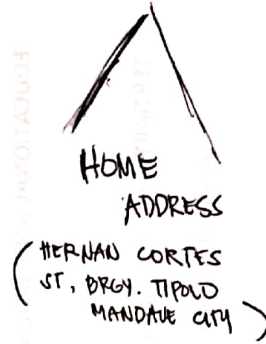 HOME
ADDRESS
(HERNAN CORTES
ST, BRGY. TIPOLO
MANDAUE CITY)